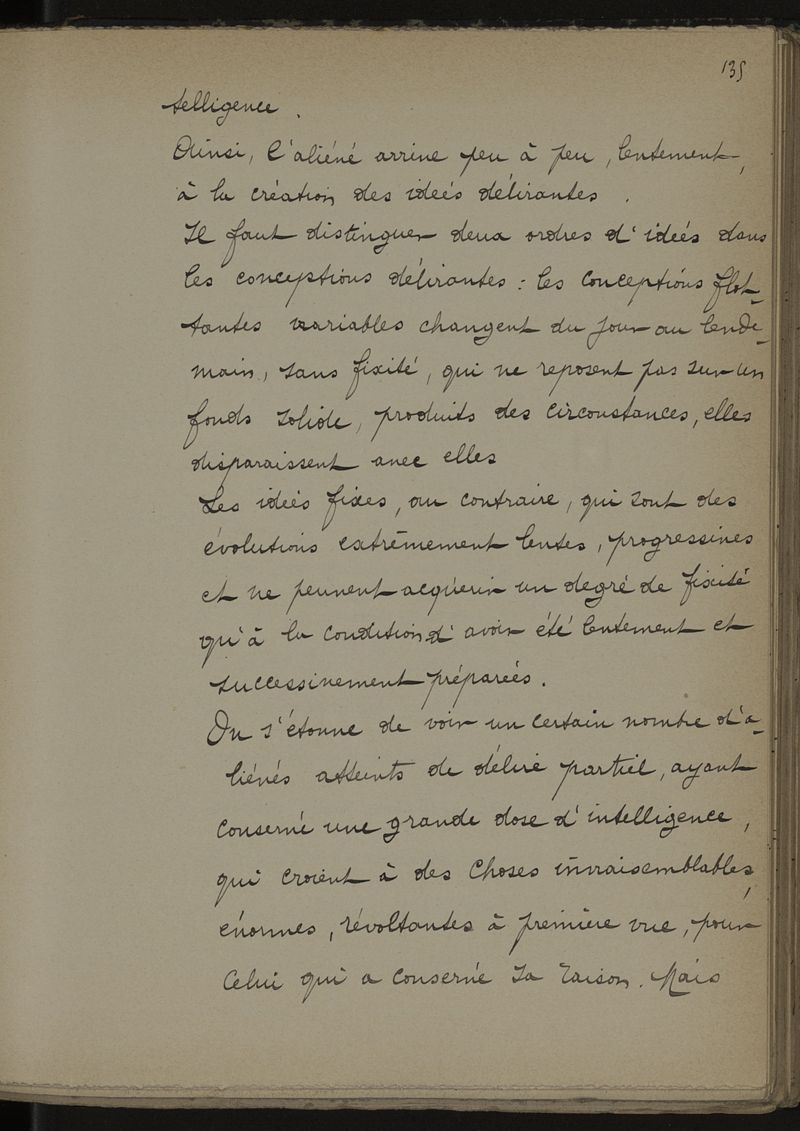 135
telligence.
Ainsi, l'aliéné arrive peu à peu, lentement,
à la création des idées délirantes.
Il faut distinguer deux ordres d'idées dans
les conceptions délirantes : les conceptions flot-
tantes variables changent du jour au lende-
main, sans fixité, qui ne reposent pas sur un
fonds solide, produits des circonstances, elles
disparaissent avec elles
Les idées fixes, au contraire, qui sont des
évolutions extrêmement lentes, progressives
et ne peuvent acquérir un degré de fixité
qu'à la condition d'avoir été lentement et
successivement préparées.
On s'étonne de voir un certain nombre d'a-
liénés atteints de délire partiel, ayant
conservé une grande dose d'intelligence,
qui croient à des choses invraisemblables,
énormes, révoltantes à première vue, pour
celui qui a conservé sa raison. Mais